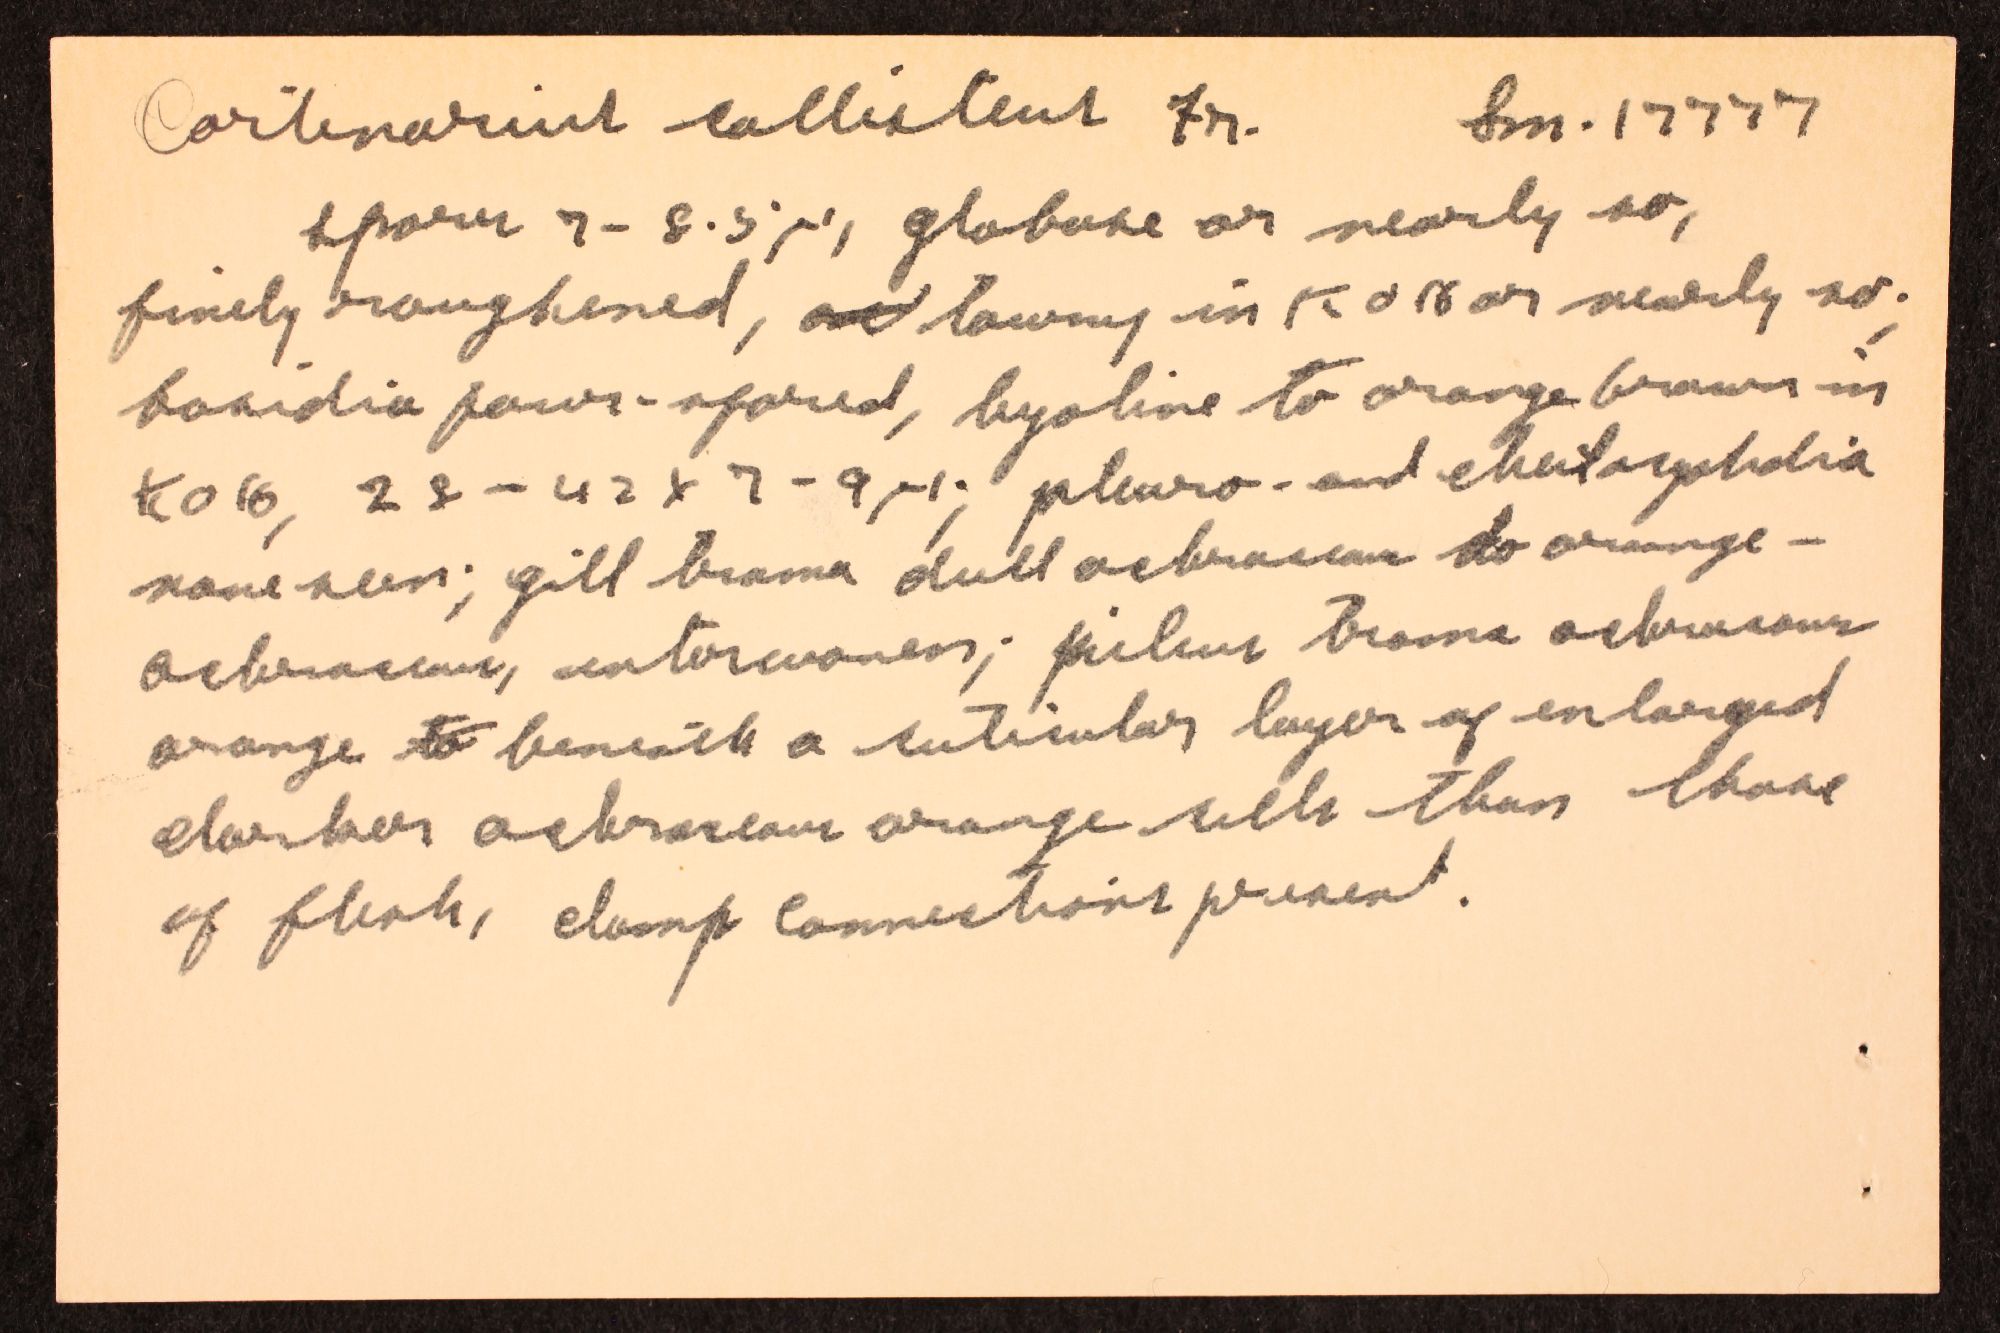 Cortinarius callisteus Fr. Sm. 17777
spores 7-8.5µ, globose or nearly so,
finely roughened, tawny in KOH or nearly so;
basidia four-spored, hyaline to orange brown in
KOH, 28-42 x 7-9µ; pleuro- and cheilocystidia
none seen; gill trama dull ochraceous to orange-
ochraceous, interwoven; pileus trama ochraceous
orange beneath a cuticular layer of enlarged
darker ochraceous orange cells than those
of flesh, clamp connections present.